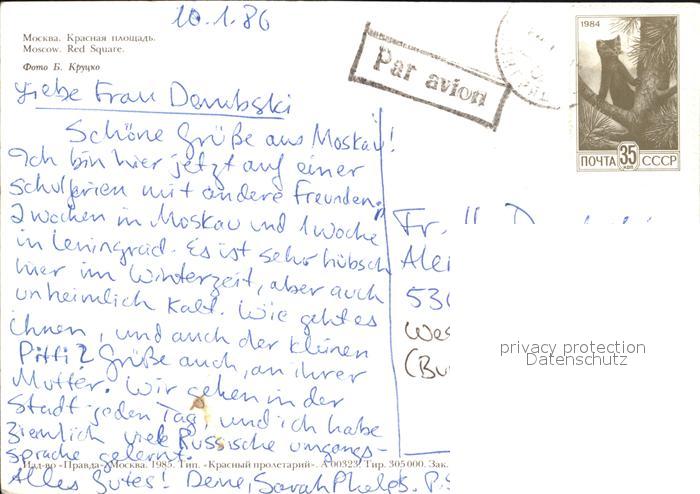 10.1.86
Москва. Красная площадь.
Moscow. Red Square.
Фото Б. Круцко
Par avion
1984
ПОЧТА 35 КОП СССР
Liebe Frau Dembski
Schöne Grüße aus Moskau!
Ich bin hier jetzt auf einer
schulferien mit andere Freunden,
2 wochen in Moskau und 1 woche
in Leningrad. Es ist sehr hübsch
hier im Winterzeit, aber auch
unheimlich Kalt. Wie geht es
ihnen, und auch der kleinen
Piffi? Grüße auch, an ihrer
Mutter. Wir gehen in der
Stadt jeden Tag, und ich habe
ziemlich viele Russische umgangs-
sprache gelernt.
Изд-во «Правда» Москва. 1985. Тип. «Красный пролетарий». А 00323. Тир. 305 000. Зак.
Alles Gutes! Deine, Sarah Phelps. P.S
Fr.
Ale
530
Wes
(Bu
privacy protection
Datenschutz